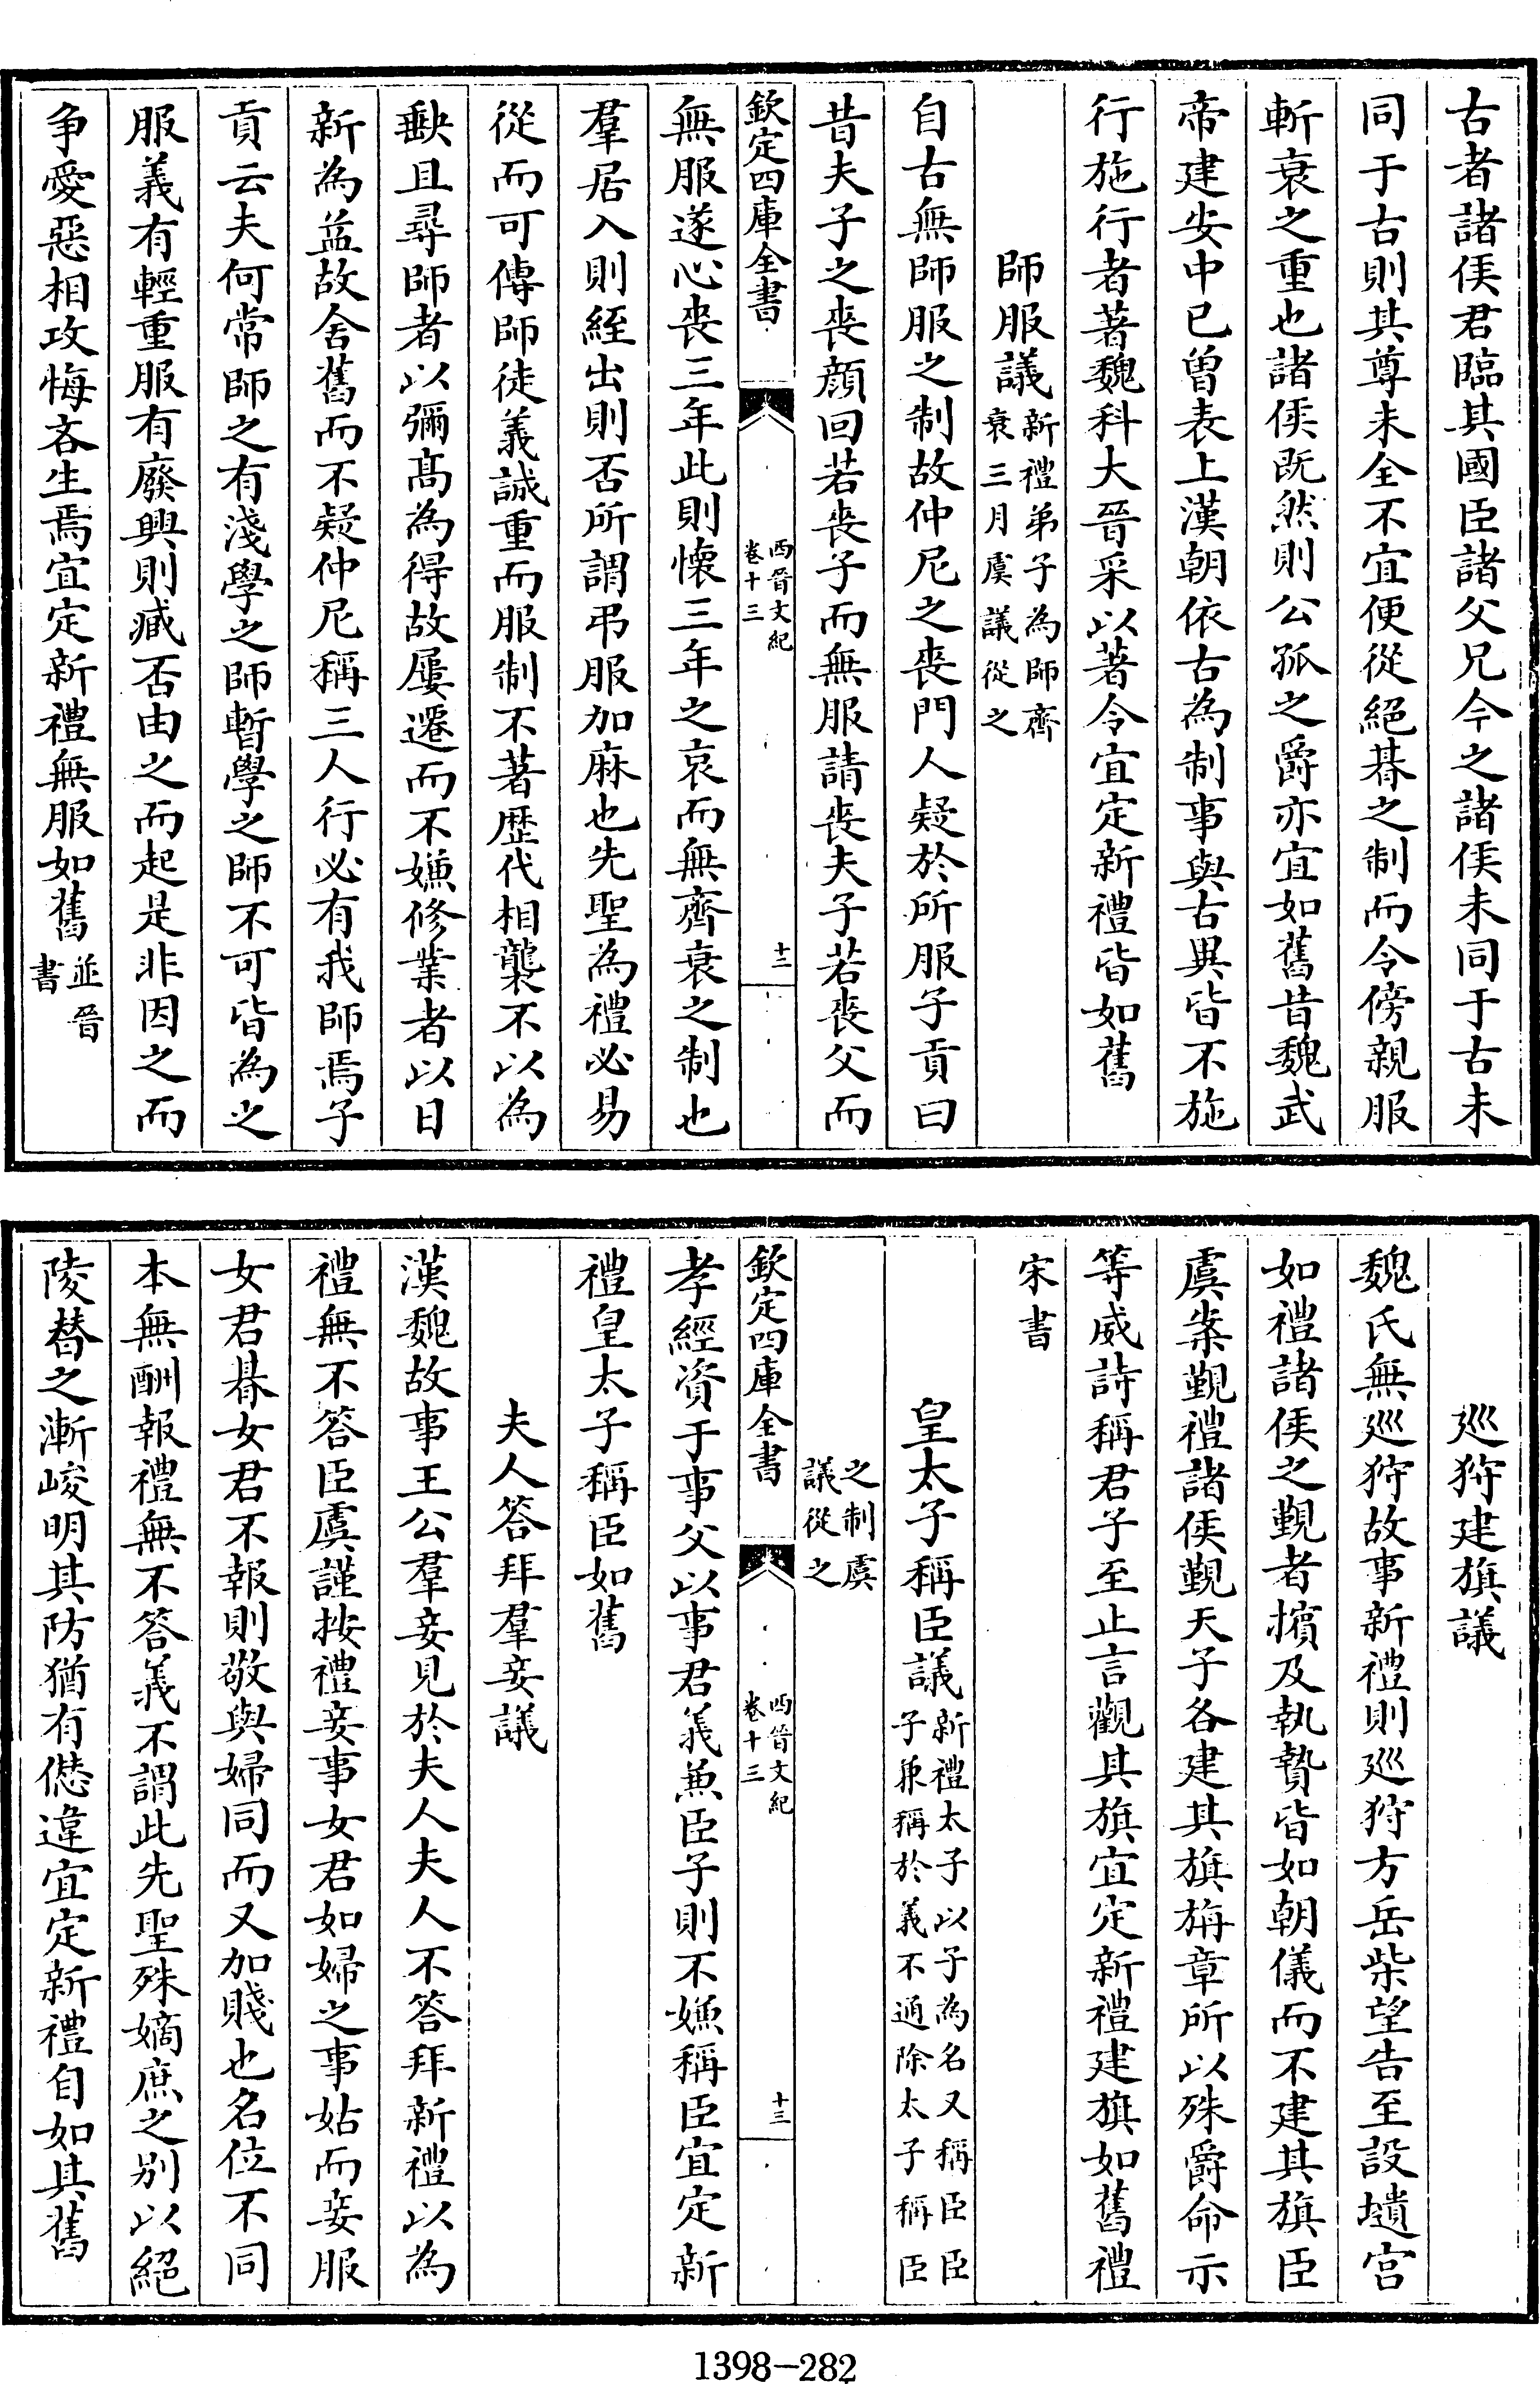 古者諸侯君臨其國臣諸父兄今之諸侯未同于古未
同于古則其尊未全不宜便從絕朞之制而令傍親服
斬衰之重也諸侯既然則公孤之爵亦宜如舊昔魏武
帝建安中已曾表上漢朝依古為制事與古異皆不施
行施行者著魏科大晉采以著令宜定新禮皆如舊
師服議新禮弟子為師齊衰三月虞議從之
自古無師服之制故仲尼之喪門人疑於所服子貢曰
昔夫子之喪顔回若喪子而無服請喪夫子若喪父而
欽定四庫全書 西晉文紀 卷十三 十二
無服遂心喪三年此則懷三年之哀而無齊衰之制也
羣居入則絰出則否所謂弔服加麻也先聖為禮必易
從而可傳師徒義誠重而服制不著歴代相襲不以為
缺且尋師者以彌髙為得故屢遷而不嫌修業者以日
新為益故舍舊而不疑仲尼稱三人行必有我師焉子
貢云夫何常師之有淺學之師暫學之師不可皆為之
服義有輕重服有廢興則臧否由之而起是非因之而
争愛惡相攻悔吝生焉宜定新禮無服如舊並晉書
巡狩建旗議
魏氏無巡狩故事新禮則巡狩方岳柴望告至設壝宫
如禮諸侯之覲者擯及執贄皆如朝儀而不建其旗臣
虞案覲禮諸侯覲天子各建其旗旃章所以殊爵命示
等威詩稱君子至止言觀其旗宜定新禮建旗如舊禮
宋書
皇太子稱臣議新禮太子以子為名又稱臣臣子兼稱於義不通除太子稱臣
之制虞議從之
欽定四庫全書 西晉文紀 卷十三 十三
孝經資于事父以事君義兼臣子則不嫌稱臣宜定新
禮皇太子稱臣如舊
夫人答拜羣妾議
漢魏故事王公羣妾見於夫人夫人不答拜新禮以為
禮無不答臣虞謹按禮妾事女君如婦之事姑而妾服
女君朞女君不報則敬與婦同而又加賤也名位不同
本無酬報禮無不答義不謂此先聖殊嫡庶之别以絕
陵替之漸峻明其防猶有僭違宜定新禮自如其舊
1398-282